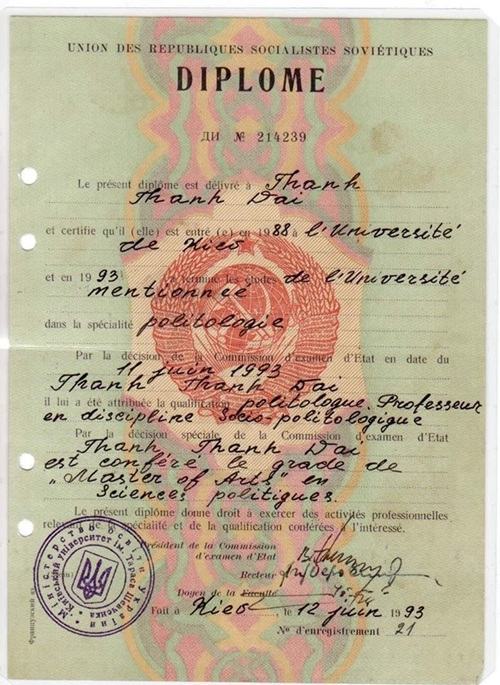 UNION DES REPUBLIQUES SOCIALISTES SOVIÉTIQUES
DIPLOME
ДИ № 214239
Le présent diplôme est délivré à Thanh
Thanh Dai
et certifie qu'il (elle) est entré (e) en 1988 à l'Université
de Kiev
et en 1993 a terminé les études de l'Université
mentionnée
dans la spécialité politologie
Par la décision de la Commission d'examen d'Etat en date du
11 juin 1993
Thanh Thanh Dai
il lui a été attribuée la qualification politologue. Professeur
en discipline Socio-politologique
Par la décision spéciale de la Commission d'examen d'Etat
Thanh Thanh Dai
est conféré le grade de
„Master of Arts" en
Sciences politiques.
Le présent diplôme donne droit à exercer des activités professionnelles
relevant de la spécialité et de la qualification conférées à l'intéressé.
Président de la Commission
d'examen d'Etat
Recteur
Doyen de la Faculté
Fait à Kiev, le 12 juin 1993
No d'enregistrement 21
Міністерство освіти України
Київський університет ім. Тараса Шевченка